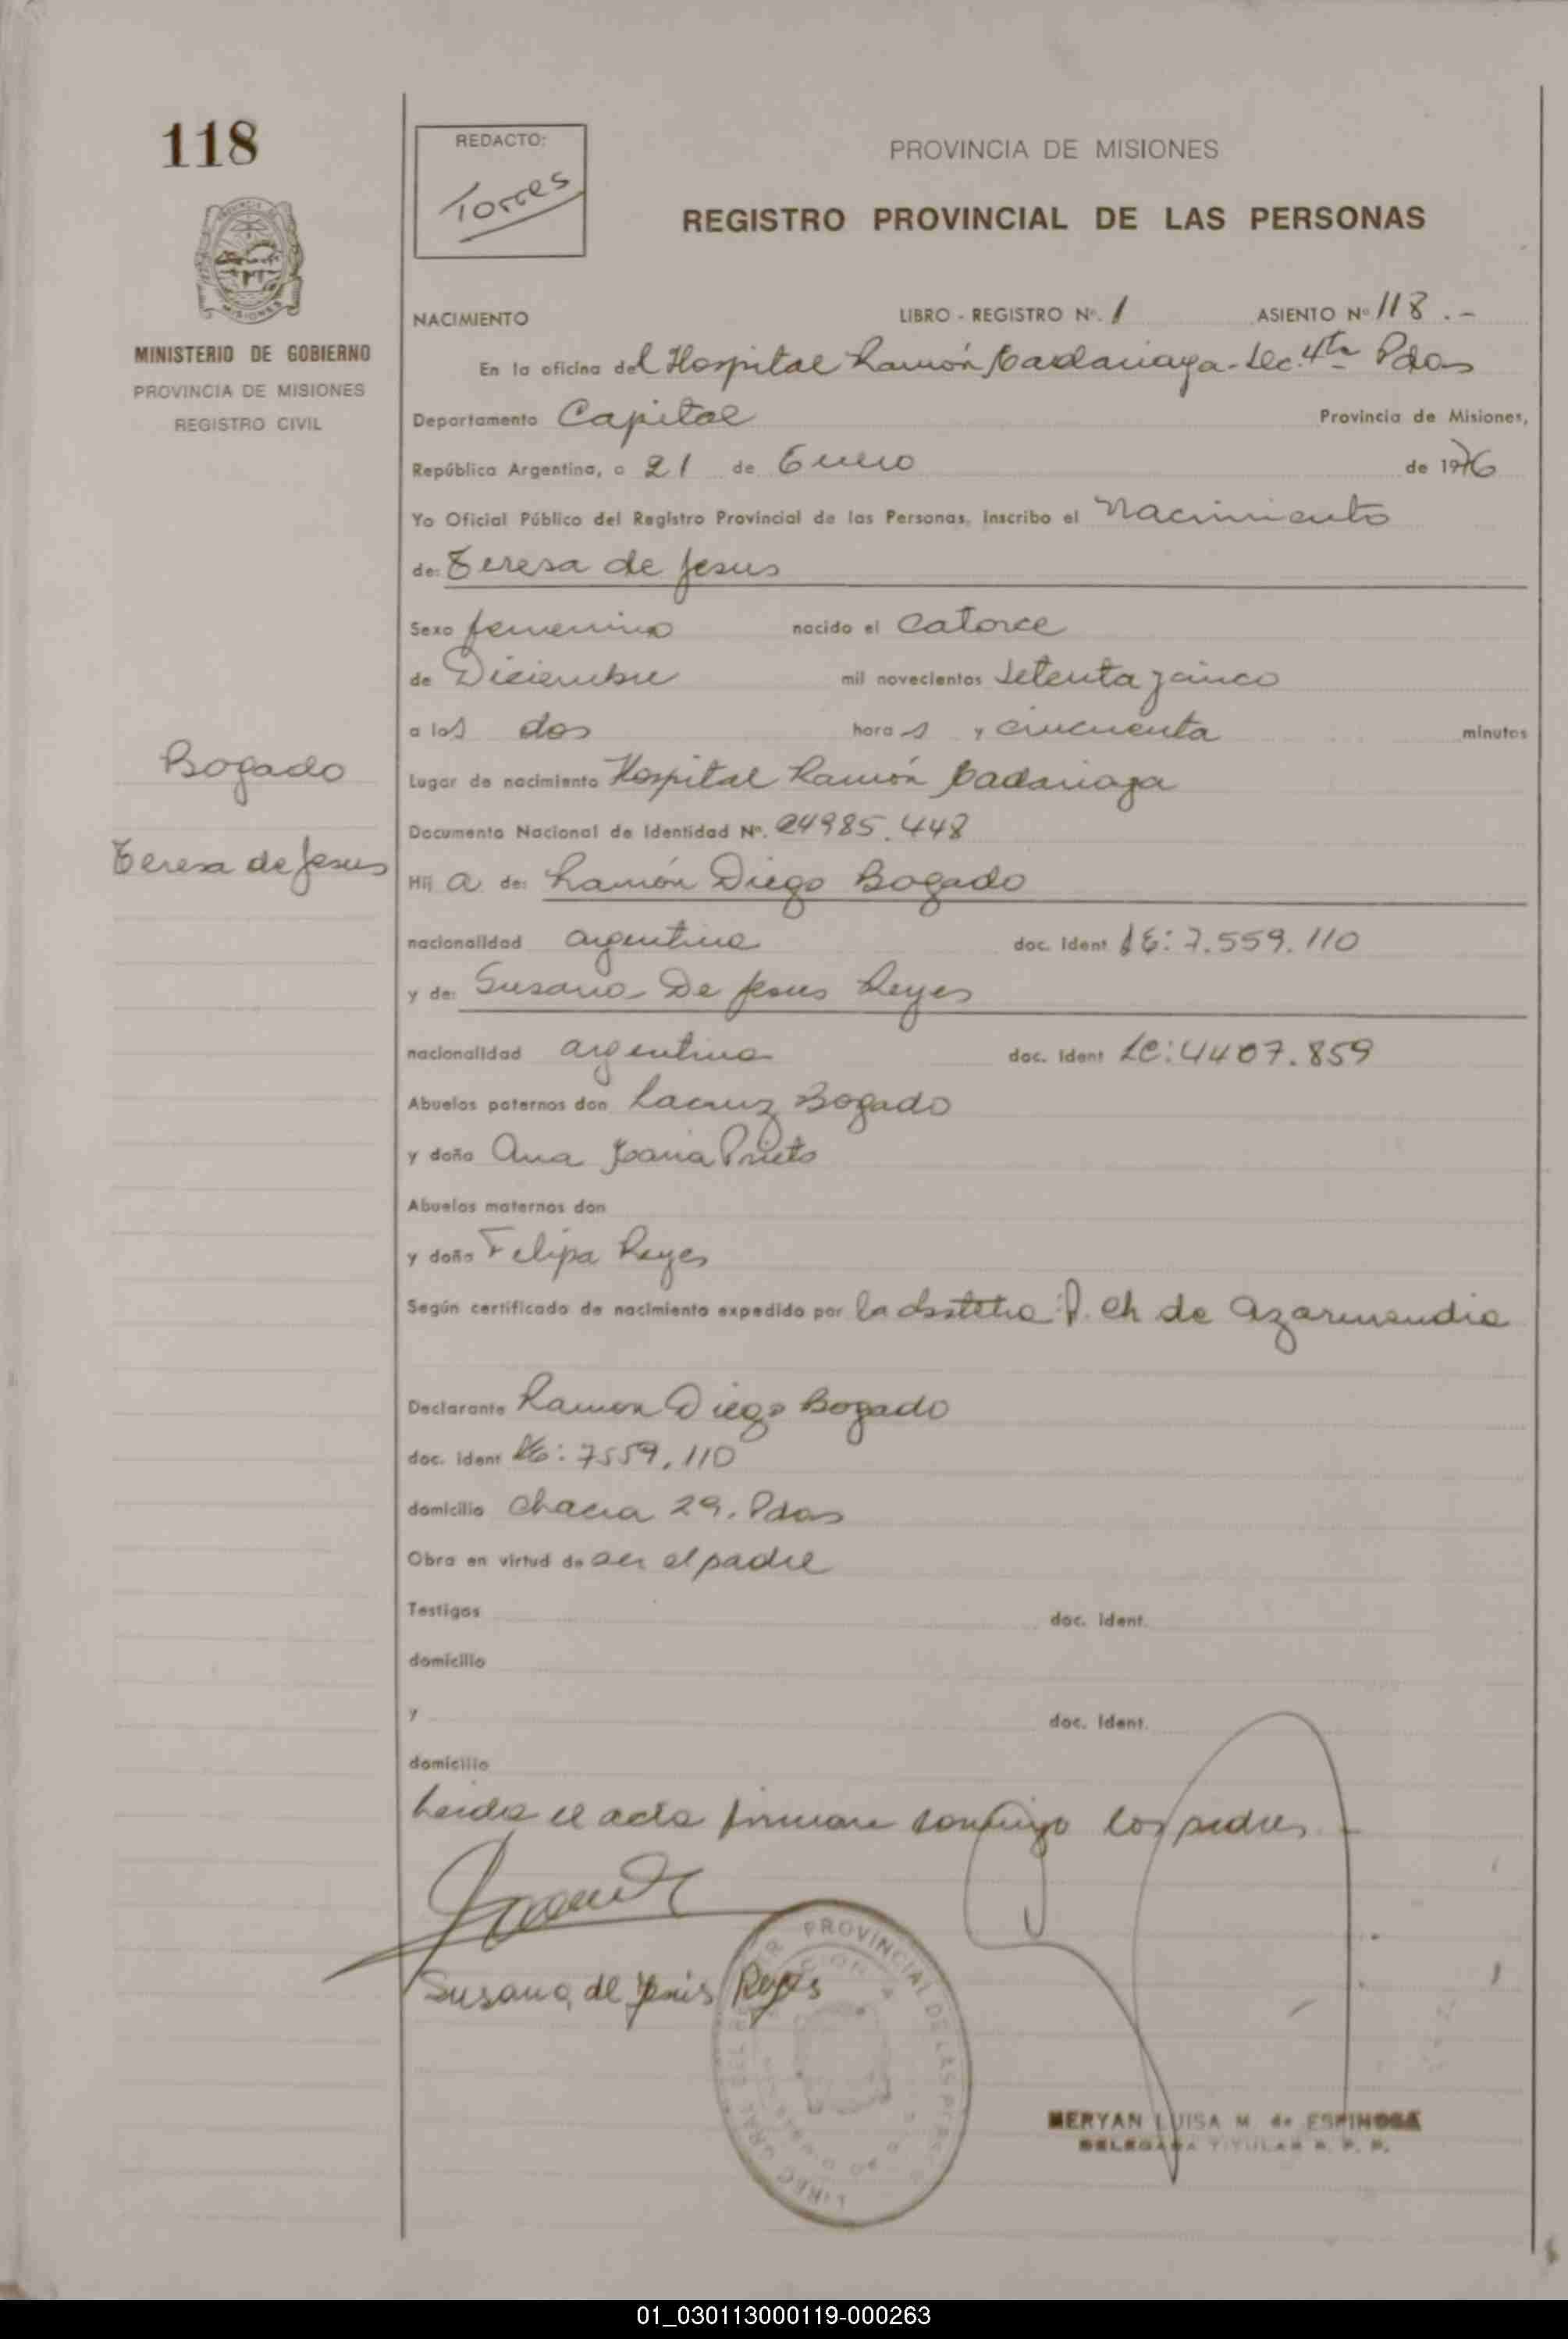 118
REDACTO:
Torres
PROVINCIA DE MISIONES
REGISTRO PROVINCIAL DE LAS PERSONAS
MINISTERIO DE GOBIERNO
PROVINCIA DE MISIONES
REGISTRO CIVIL
NACIMIENTO LIBRO - REGISTRO Nº. 1 ASIENTO Nº 118 . -
En la oficina del Hospital Ramón Madariaga - Sec. 4ta Pdas
Departamento Capital Provincia de Misiones,
República Argentina, a 21 de Enero de 1976
Yo Oficial Público del Registro Provincial de las Personas, inscribo el Nacimiento
de: Teresa de Jesus
Sexo femenino nacido el Catorce
de Diciembre mil novecientos setenta y cinco
a las dos horas y cincuenta minutos
Bogado
Lugar de nacimiento Hospital Ramón Madariaga
Documento Nacional de Identidad Nº. 24985.448
Teresa de Jesus
Hija de: Ramón Diego Bogado
nacionalidad argentina doc. Ident LE: 7.559.110
y de: Susana De Jesus Reyes
nacionalidad argentina doc. Ident LC: 4407.859
Abuelos paternos don Lacruz Bogado
y doña Ana Prieto
Abuelos maternos don
y doña Felipa Reyes
Según certificado de nacimiento expedido por la P. Ch de Azarmendia
Declarante Ramon Diego Bogado
doc. Ident LE: 7559.110
domicilio Chacra 29. Pdas
Obra en virtud de ser el padre
Testigos doc. Ident.
domicilio
y doc. Ident.
domicilio
Leida el acta firman conmigo los padres -
Susana de Jesus Reyes
PROVINCIAL DE LAS
MERYAN LUISA M. de ESPINOSA
DELEGADA TITULAR R. P. P.
01_030113000119-000263